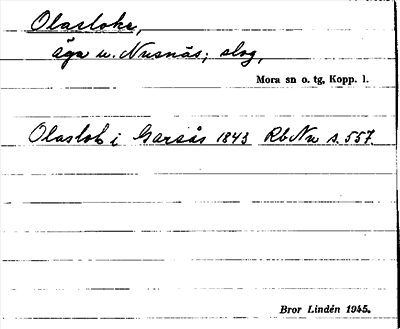 Olasloke,
äga u. Nusnäs; slog,
Mora sn o. tg, Kopp. l.
Olaslok i Garsås 1843 Rb Nu s. 557
Bror Lindén 1945.